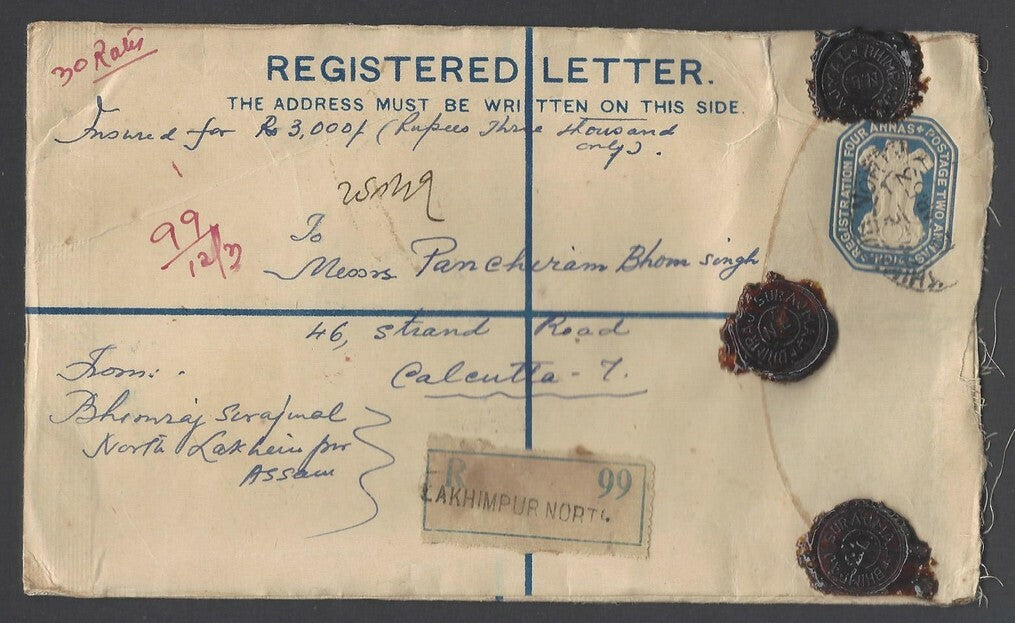 30 Rates
REGISTERED LETTER.
THE ADDRESS MUST BE WRITTEN ON THIS SIDE.
Insured for Rs 3,000/- (Rupees Three thousand
only).
REGISTRATION FOUR ANNAS + POSTAGE TWO ANNAS
99
To
Messrs Panchiram Bhom Singh
46, Strand Road
Calcutta - 7.
From:-
Bhimraj Surajmal
North Lakhimpur
Assam
R 99
LAKHIMPUR NORTH